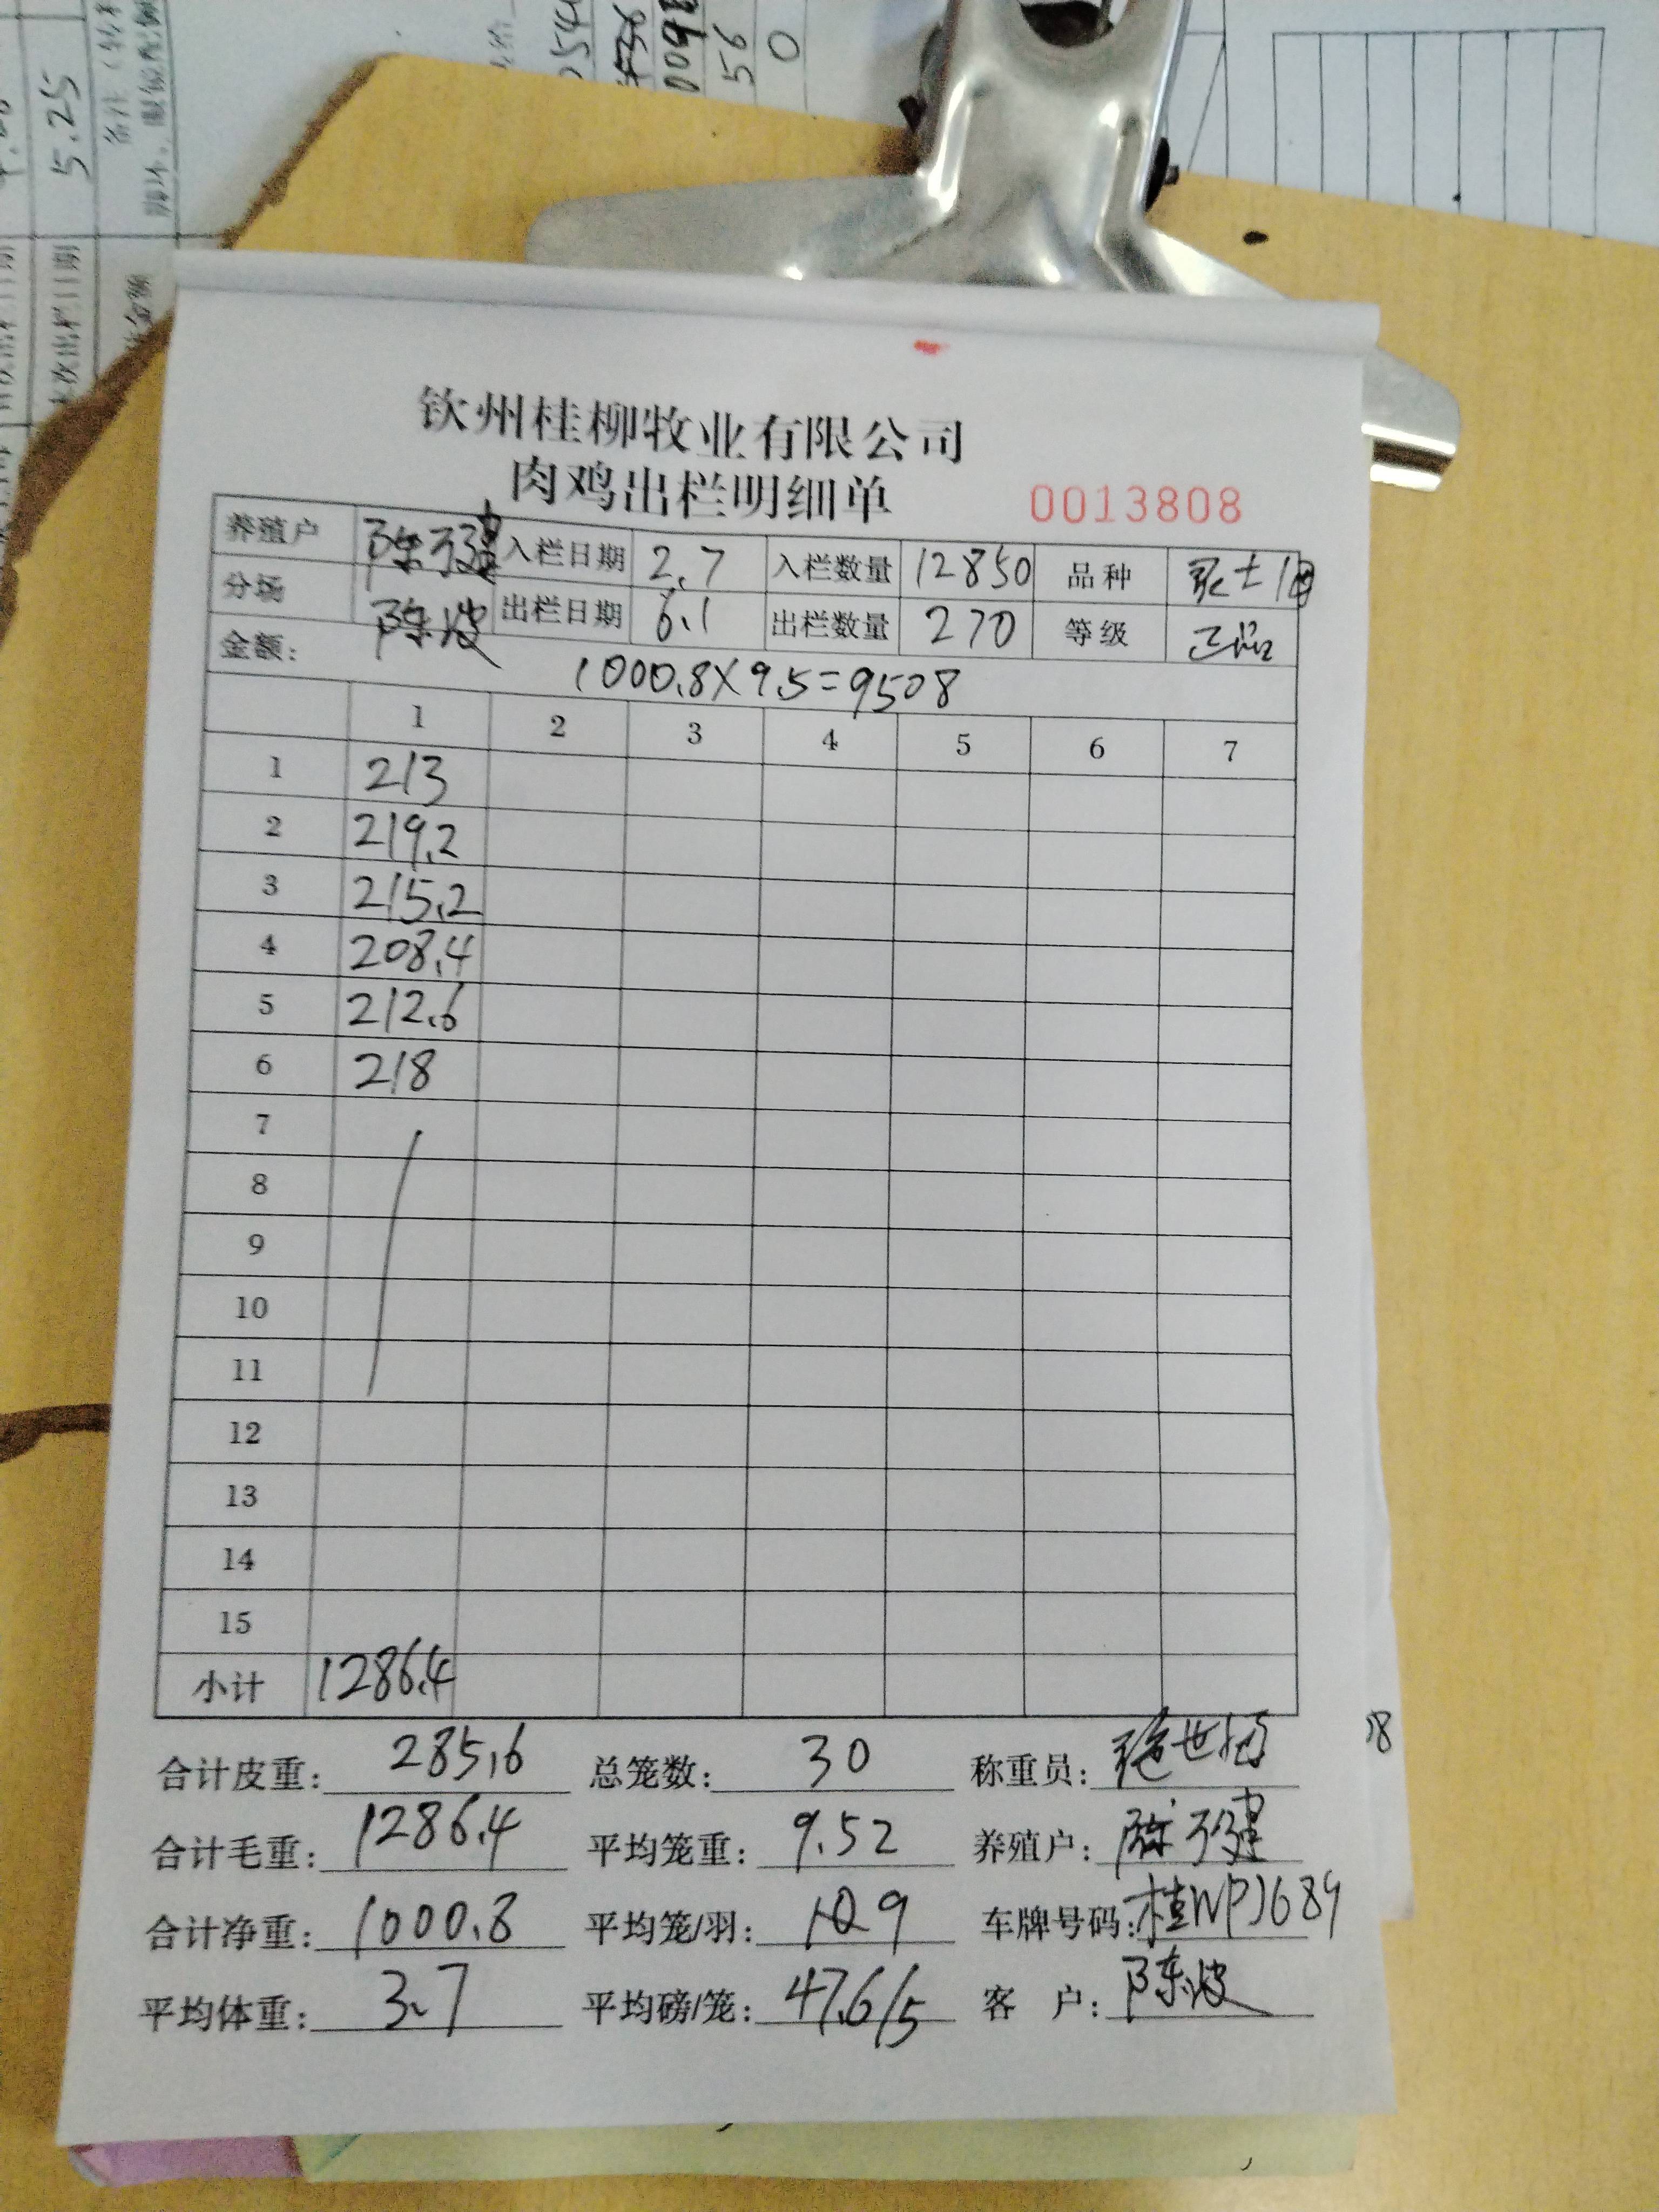 5.25
56
0
钦州桂柳牧业有限公司
肉鸡出栏明细单 0013808
养殖户 入栏日期 2.7 入栏数量 12850 品种
分场 陈波 出栏日期 6.1 出栏数量 270 等级 正品
金额: 1000.8×9.5=9508
1 2 3 4 5 6 7
1 213
2 219.2
3 215.2
4 208.4
5 212.6
6 218
7
8
9
10
11
12
13
14
15
小计 1286.4
合计皮重: 285.6 总笼数: 30 称重员:
合计毛重: 1286.4 平均笼重: 9.52 养殖户:
合计净重: 1000.8 平均笼/羽: 9 车牌号码:
平均体重: 3.7 平均磅/笼: 47.6/5 客 户: 陈波